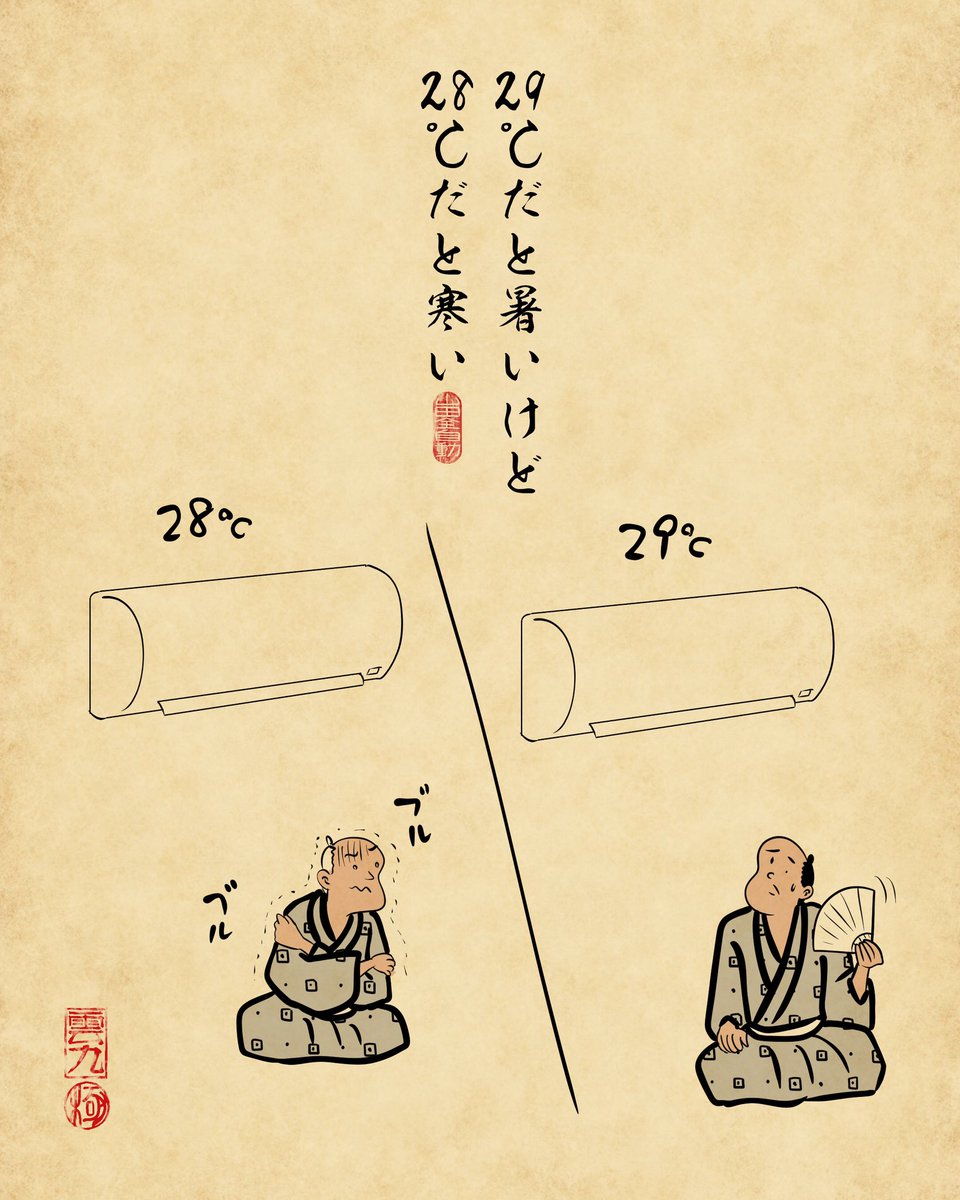 29℃だと暑いけど
28℃だと寒い
29℃
28℃
ブル
ブル
雲九
極